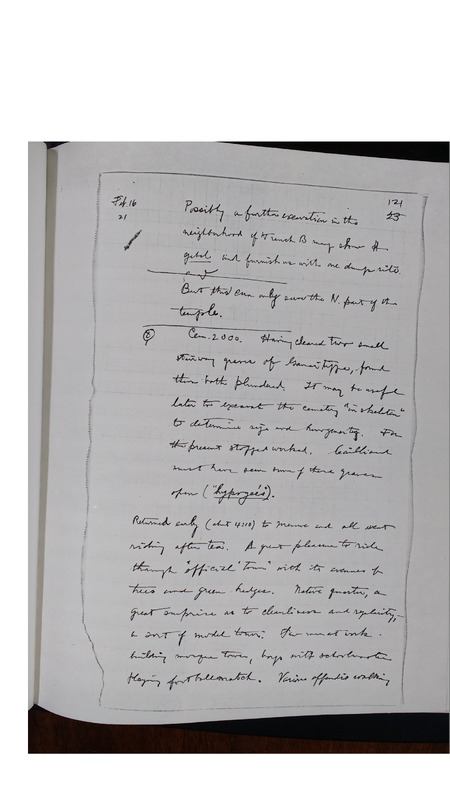 Feb. 16
21
121
23
Possibly a further excavation in the
neighborhood of trench B may show it
gebel and furnish us with one dump site
But this can only serve the N. part of the
temple.
(c) Cem. 2000. Having cleared two small
stairway graves of type, found
them both plundered. It may be useful
later to excavate the cemetery "in skeleton"
to determine size and homogeneity. For
the present stopped work. Cailliaud
must have seen some of these graves
open ("hypogées").
Returned early (about 4:10) to Merawi and all went
riding after tea. A great pleasure to ride
through "official town" with its avenues of
trees and green hedges. Native quarter, a
great surprise as to cleanliness and regularity,
a sort of model town. Few men at work
building mosque tower, boys with schoolmaster
playing football match. Various effendis walking